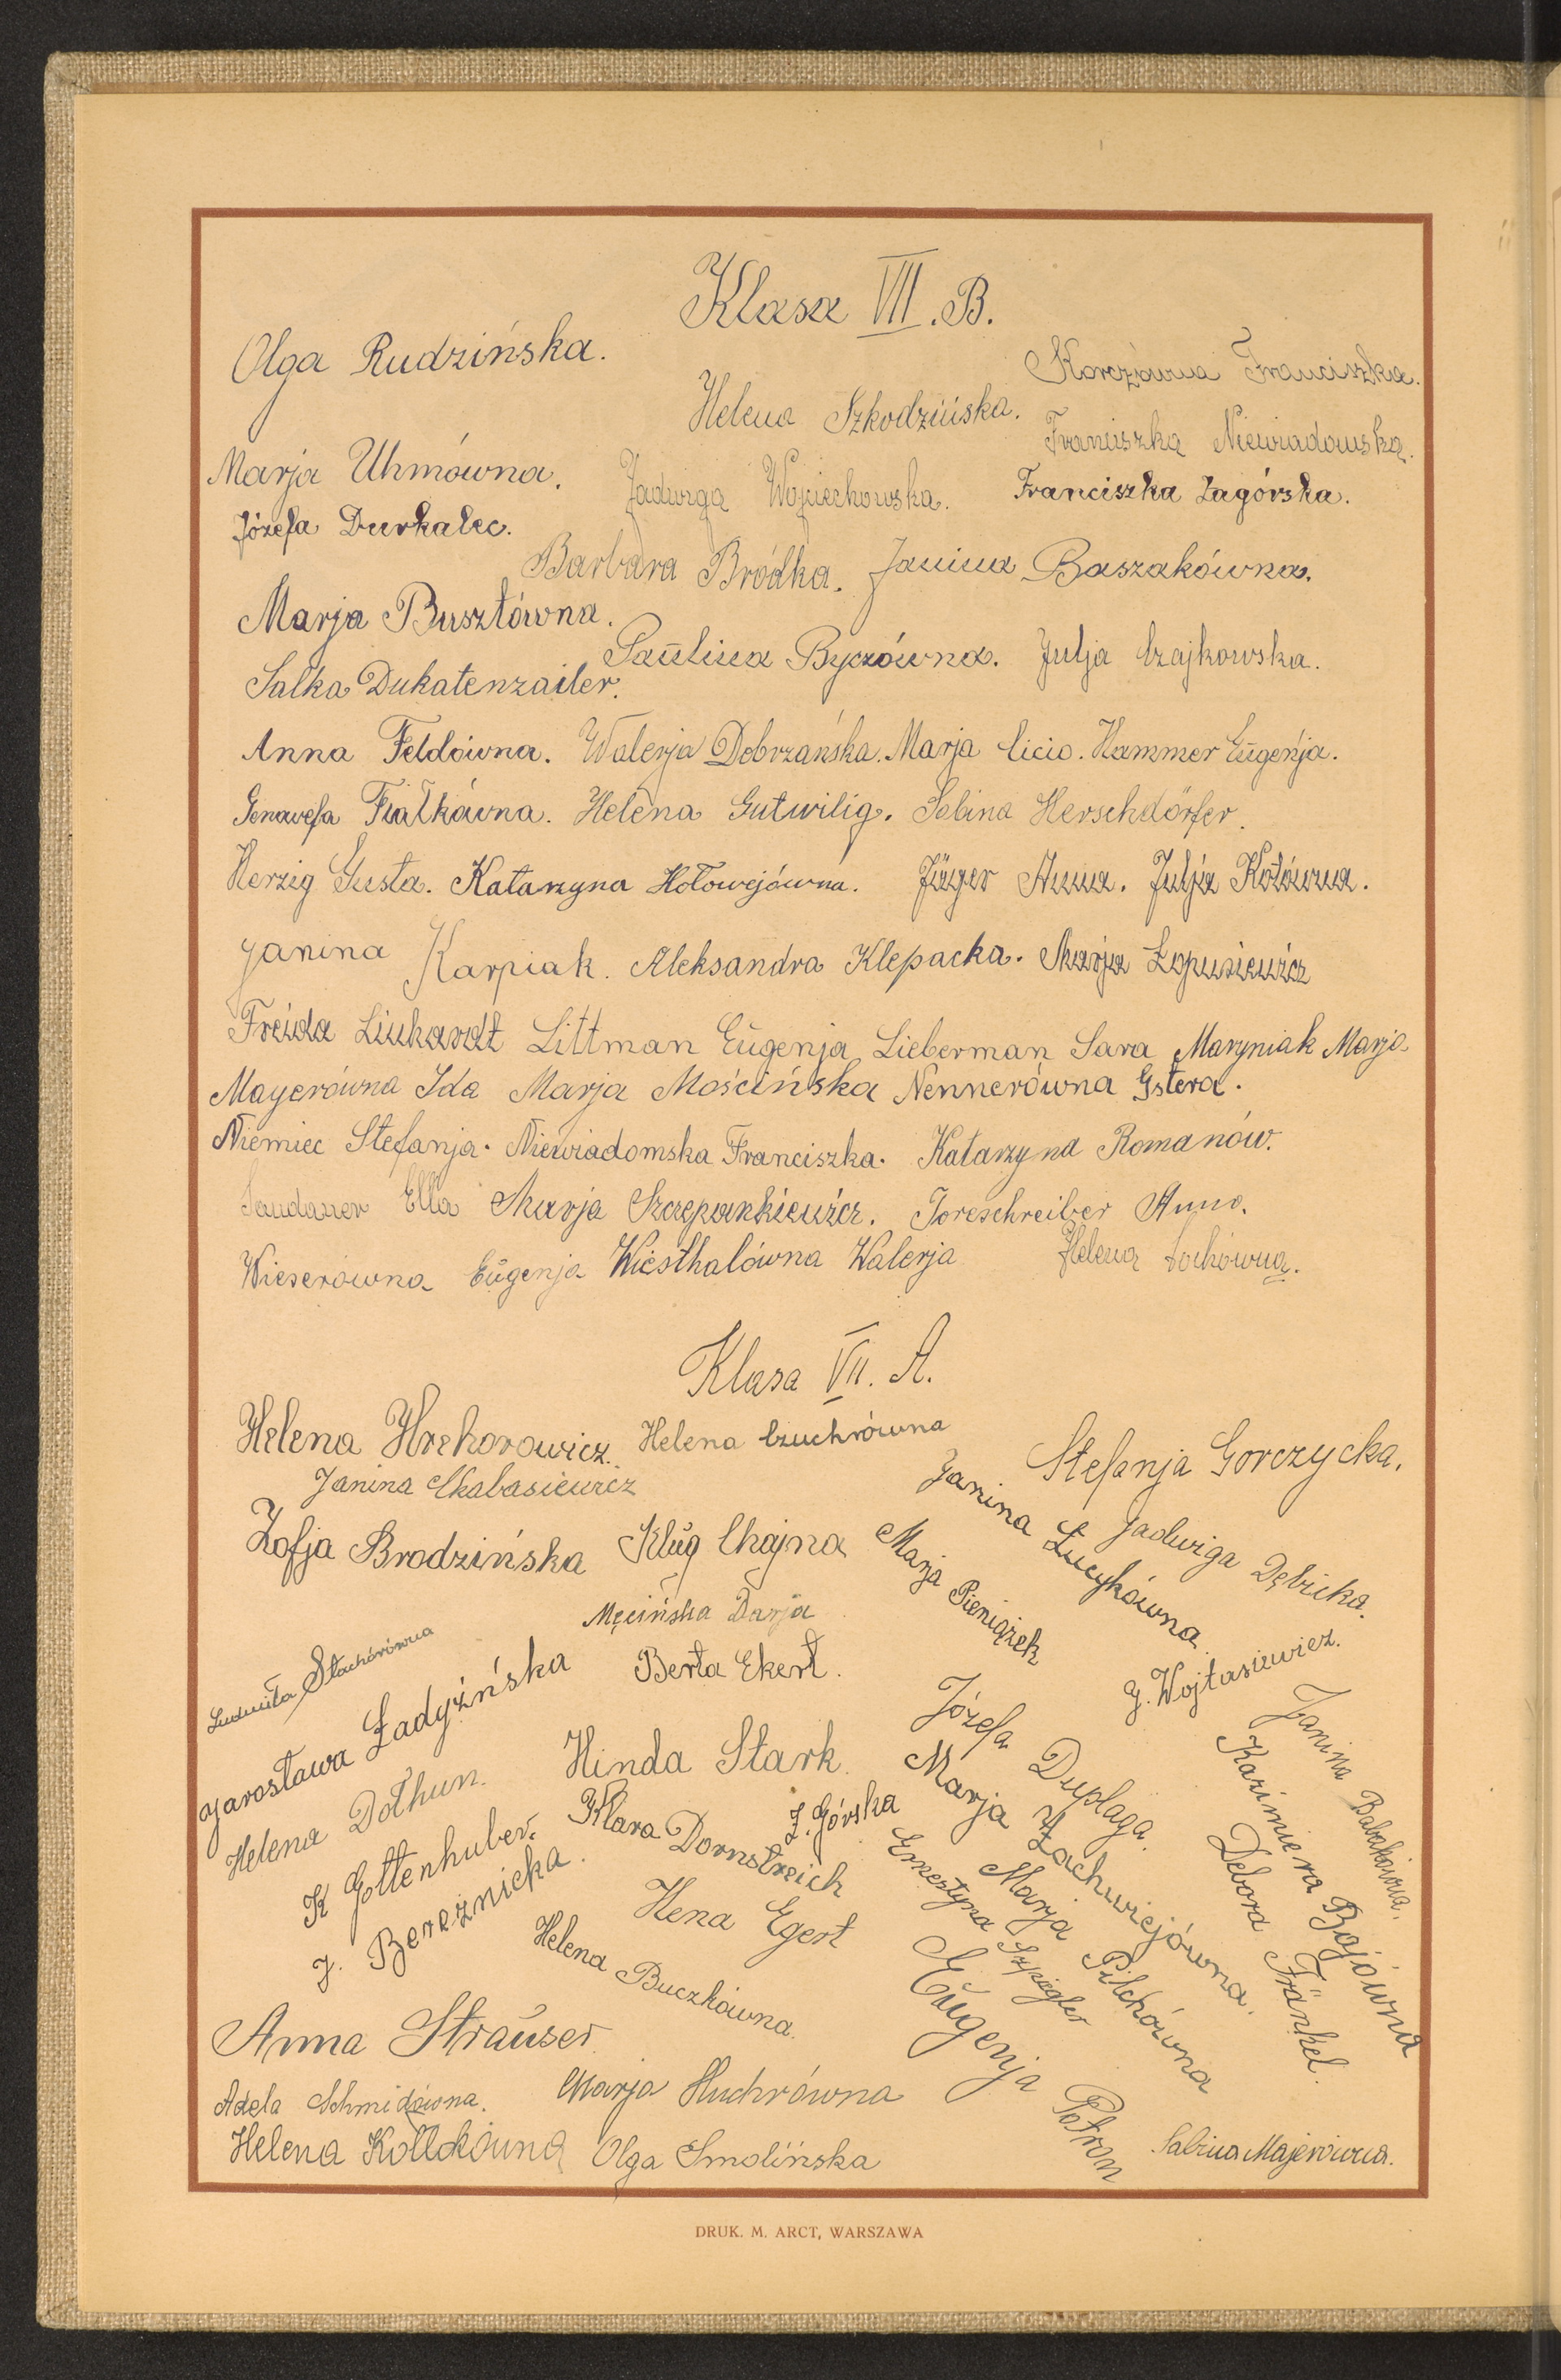 Klasa VII. B.
Olga Rudzińska.
Korczówna Franciszka.
Helena Szkodzińska.
Franciszka Niewiadowska.
Marja Uhmówna.
Jadwiga Wojciechowska.
Franciszka Zagórska.
Józefa Durkalec.
Barbara Bródka.
Janina Baszakówna.
Marja Busztówna.
Paulina Byczówna.
Julja Czajkowska.
Salka Dukatenzailer.
Anna Feldówna. Walerja Dobrzańska. Marja Cicio. Hammer Eugenja.
Genowefa Fiałkówna. Helena Gutwilig. Sabina Herschdörfer.
Herzig Gusta. Katarzyna Hołowejówna. Jäger Anna. Julja Kotówna.
Janina Karpiak. Aleksandra Klepacka. Marja Łopusiewicz
Freida Linkardt Littman Eugenja Lieberman Sara Maryniak Marja
Mayerówna Ida Marja Mościńska Nennerówna Estera.
Niemiec Stefanja. Niewiadomska Franciszka. Katarzyna Romanów.
Sandauer Ella Marja Szczepankiewicz. Toreschreiber Anna.
Wieserówna Eugenja Wiesthalówna Walerja Helena
Klasa VII. A.
Helena Hrehorowicz.
Helena Czuchrówna
Stefanja Gorczycka.
Janina Chabasiewicz
Janina Łucykówna.
Jadwiga Dębicka.
Zofja Brodzińska
Klug Chajna
Marja Pieniążek
Męcińska Darja
Ludmiła Stachórówna
Berta Ekert.
J. Wojtasiewicz.
Jarosława Ładyżyńska
Józefa Duplaga.
Janina Babakówna.
Hinda Stark.
Marja Żachwiejówna.
Kazimiera Bojówna
Helena Dołhun.
Z. Górska
K Gottenhuber.
Klara Dornstreich
Ernestyna Szpigler
Marja Pilchówna
Debora Fränkel.
J. Bereżnicka.
Hena Egert
Helena Buczkówna.
Eugenja Patron
Anna Strauser.
Adela Schmidówna.
Marja Huchrówna
Helena
Olga Smolińska
Sabina Majerówna.
DRUK. M. ARCT, WARSZAWA